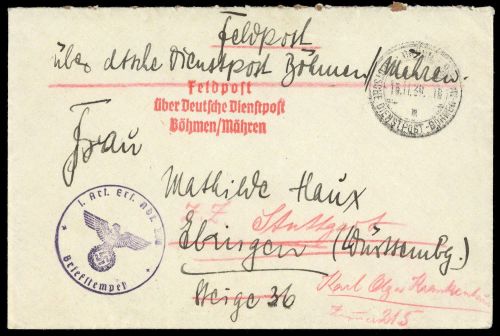 Feldpost
über dtsche Dienstpost Böhmen/Mähren.
Feldpost
über Deutsche Dienstpost
Böhmen/Mähren
DEUTSCHE DIENSTPOST BÖHMEN-
Frau
Mathilde Haux
z. Z. Stuttgart
Ebingen (Württembg.)
Steige 36
Karl Olga Krankenhaus
Briefstempel